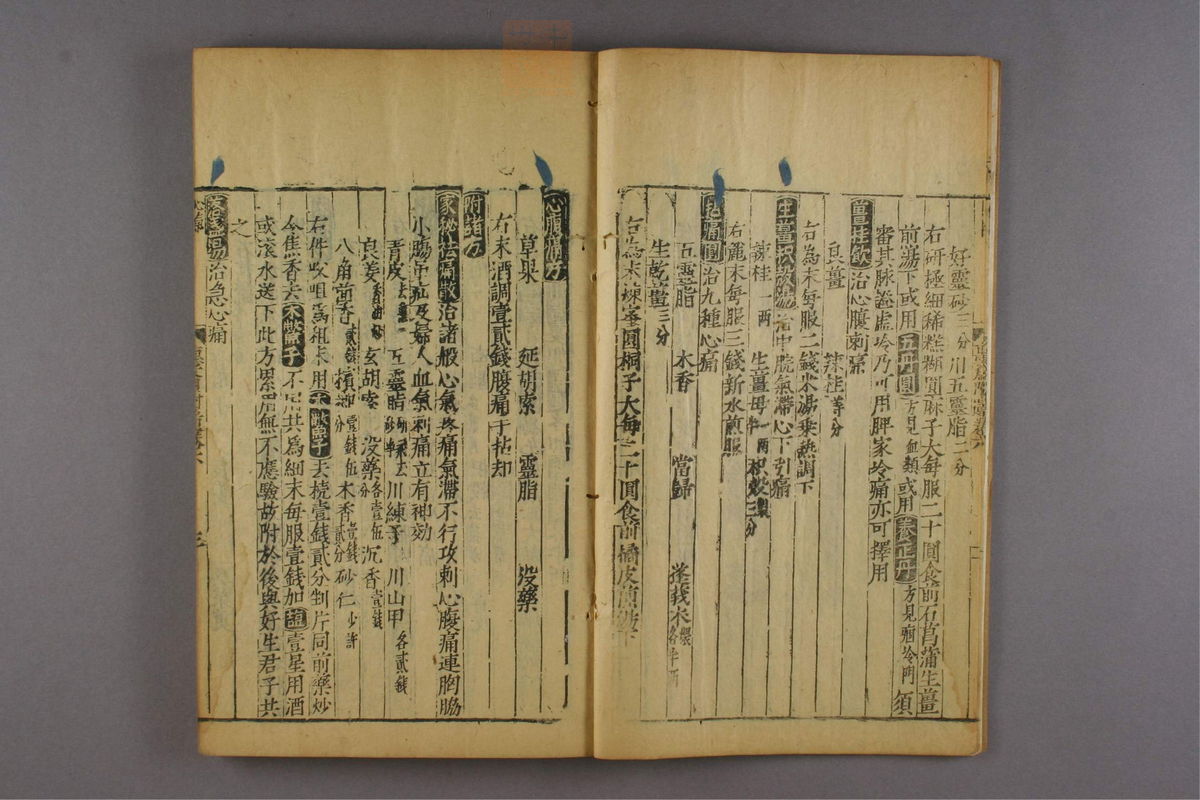 好靈砂三分川五靈脂二分
右研極細稀糕糊圓麻子大每服二十圓食前石菖蒲生薑
前湯下或用五丹圓方見血類或用養正丹方見痼冷門須
審其脉澁虛冷乃可用脾家冷痛亦可擇用
薑桂飲治心腹刺痛
良薑 辣桂等分
右為末每服二錢米湯乗熱調下
生薑枳殼湯治中脘氣滯心下引痛
辣桂一兩 生薑母半兩 枳殼製三分
右麄末每服三錢新水煎服
拈痛圓治九種心痛
五靈脂 木香 當歸 蓬莪朮煨各半兩
生乾薑三分
右為末煉蜜圓桐子大每二十圓食前橘皮煎湯下
心腹痛方
草果 延胡索 靈脂 没藥
右末酒調壹貳錢腹痛于拈却
附諸方
家秘祛痛散治諸般心氣疼痛氣滯不行攻刺心腹痛連胸脇
小腸疝疝及婦人血氣刺痛立有神効
青皮去 五靈脂 川練子 川山甲各貳錢
良姜香油炒 玄胡索 没藥各壹伍分 沉香壹錢
八角茴香貳錢 檳榔壹錢伍分 木香壹錢貳分 砂仁少許
右件㕮咀為粗末用木鱉子去殼壹錢貳分剉片同前藥炒
令焦香去木鱉子不用共為細末每服壹錢加塩壹星用酒
或滚水送下此方累用無不應驗故附於後與好生君子共
之
治急心痛